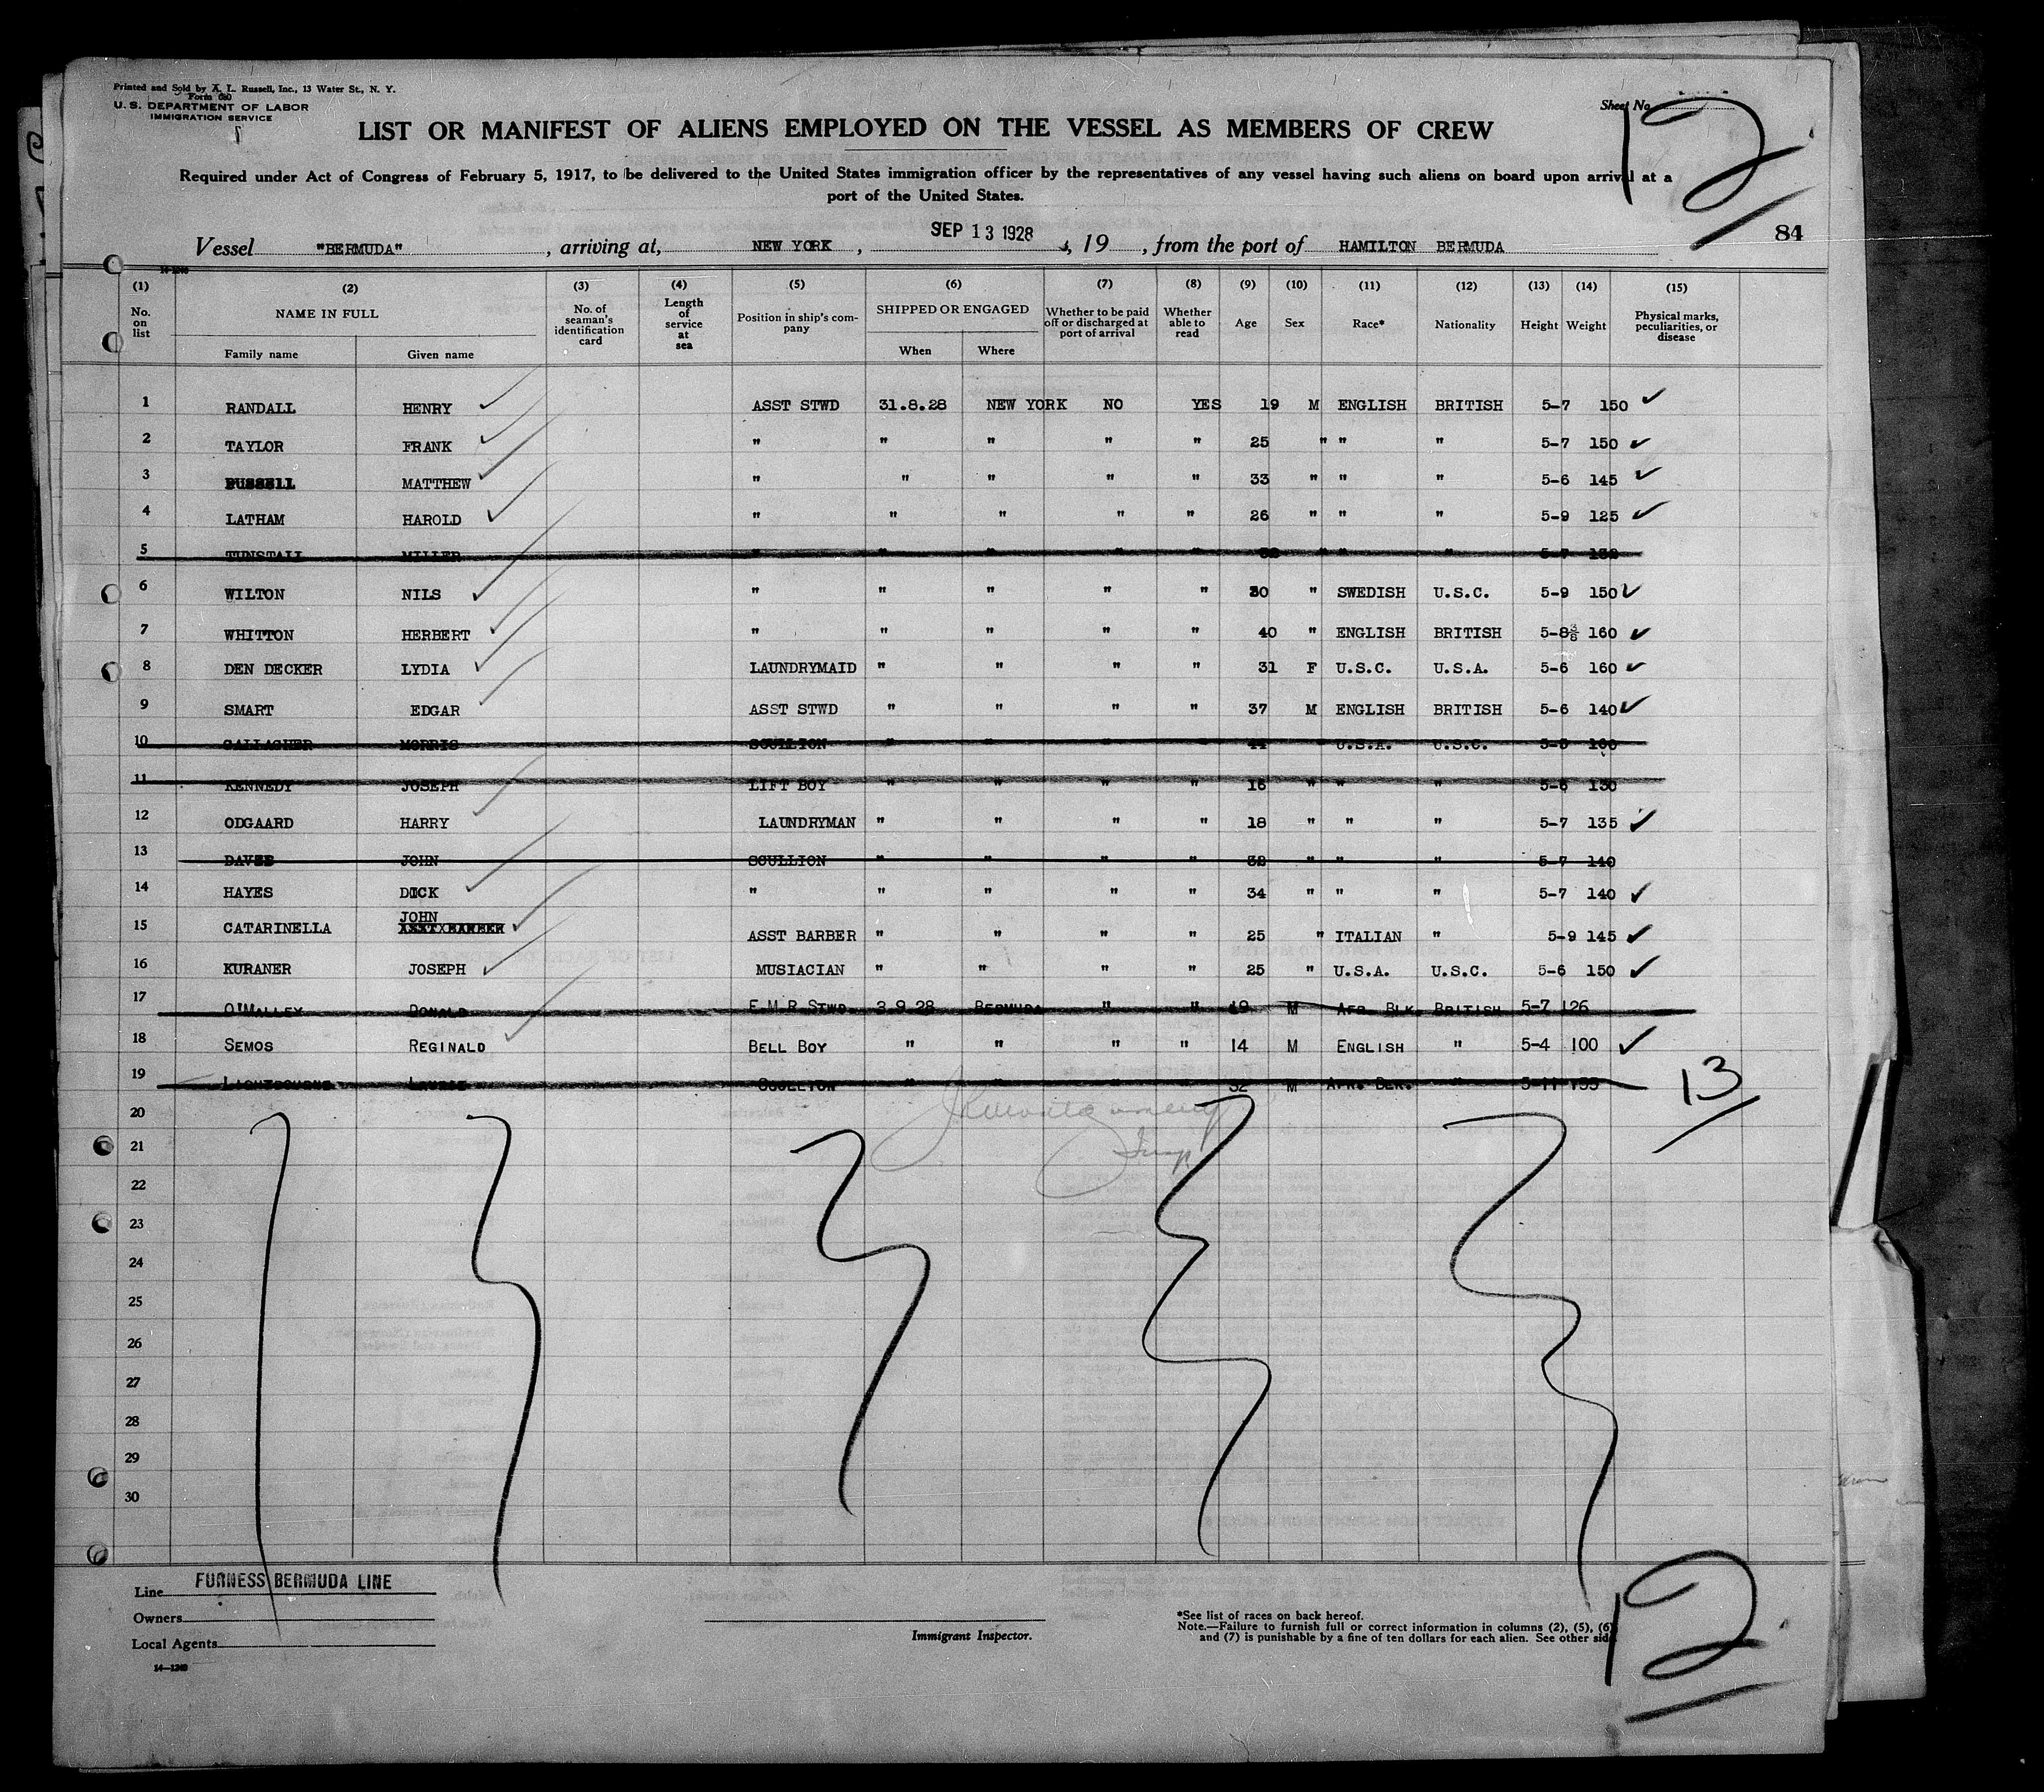 Printed and Sold by A. L. Russell, Inc., 13 Water St., N. Y.
Form 680
U. S. DEPARTMENT OF LABOR
IMMIGRATION SERVICE
Sheet No.
12
LIST OR MANIFEST OF ALIENS EMPLOYED ON THE VESSEL AS MEMBERS OF CREW
Required under Act of Congress of February 5, 1917, to be delivered to the United States immigration officer by the representatives of any vessel having such aliens on board upon arrival at a
port of the United States.
Vessel "BERMUDA", arriving at, NEW YORK, SEP 13 1928, 19 , from the port of HAMILTON BERMUDA 84
14-1240
(1) (2) (3) (4) (5) (6) (7) (8) (9) (10) (11) (12) (13) (14) (15)
No. on list NAME IN FULL No. of seaman's identification card Length of service at sea Position in ship's company SHIPPED OR ENGAGED Whether to be paid off or discharged at port of arrival Whether able to read Age Sex Race* Nationality Height Weight Physical marks, peculiarities, or disease
Family name Given name When Where
1 RANDALL HENRY ASST STWD 31.8.28 NEW YORK NO YES 19 M ENGLISH BRITISH 5-7 150
2 TAYLOR FRANK " " " " " 25 " " " 5-7 150
3 RUSSELL MATTHEW " " " " " 33 " " " 5-6 145
4 LATHAM HAROLD " " " " " 26 " " " 5-9 125
5 TUNSTALL MILLER " " " " " " " " 5-7
6 WILTON NILS " " " " " 30 " SWEDISH U.S.C. 5-9 150
7 WHITTON HERBERT " " " " " 40 " ENGLISH BRITISH 5-8 160
8 DEN DECKER LYDIA LAUNDRYMAID " " " " 31 F U.S.C. U.S.A. 5-6 160
9 SMART EDGAR ASST STWD " " " " 37 M ENGLISH BRITISH 5-6 140
10 GALLAGHER MORRIS SCULLION " " " " 44 U.S.A. U.S.C.
11 KENNEDY JOSEPH LIFT BOY " " " " 16 " " " 5-6 130
12 ODGAARD HARRY LAUNDRYMAN " " " " 18 " " " 5-7 135
13 JOHN SCULLION " " " " " " " 5-7 140
14 HAYES DICK " " " " " 34 " " " 5-7 140
JOHN
15 CATARINELLA ASST BARBER ASST BARBER " " " " 25 " ITALIAN " 5-9 145
16 KURANER JOSEPH MUSIACIAN " " " " 25 " U.S.A. U.S.C. 5-6 150
17 O'MALLEY DONALD E.M.R.STWD. 3.9.28 BERMUDA " " 19 M AFR. BLK. BRITISH 5-7 126
18 SEMOS REGINALD BELL BOY " " " " 14 M ENGLISH " 5-4 100
19 LIGHTBOURNE SCULLION " " " " 32 M AFR. BLK. " 5-11
13
20
21
22
23
24
25
26
27
28
29
30
Line FURNESS BERMUDA LINE
Owners
Local Agents
14-1240
Immigrant Inspector.
*See list of races on back hereof.
Note.—Failure to furnish full or correct information in columns (2), (5), (6)
and (7) is punishable by a fine of ten dollars for each alien. See other side.
12